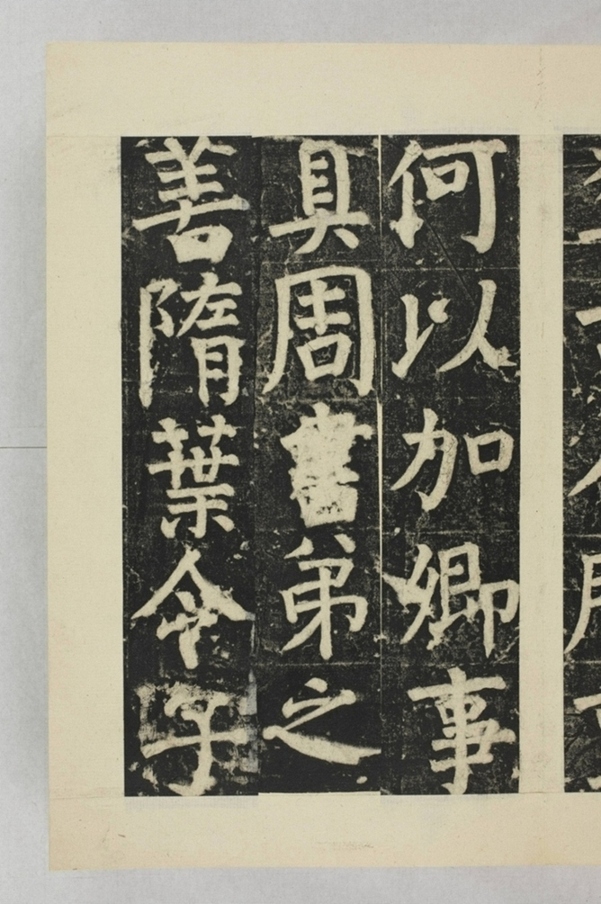 何以加卿事
具周書弟之
善隋葉令子